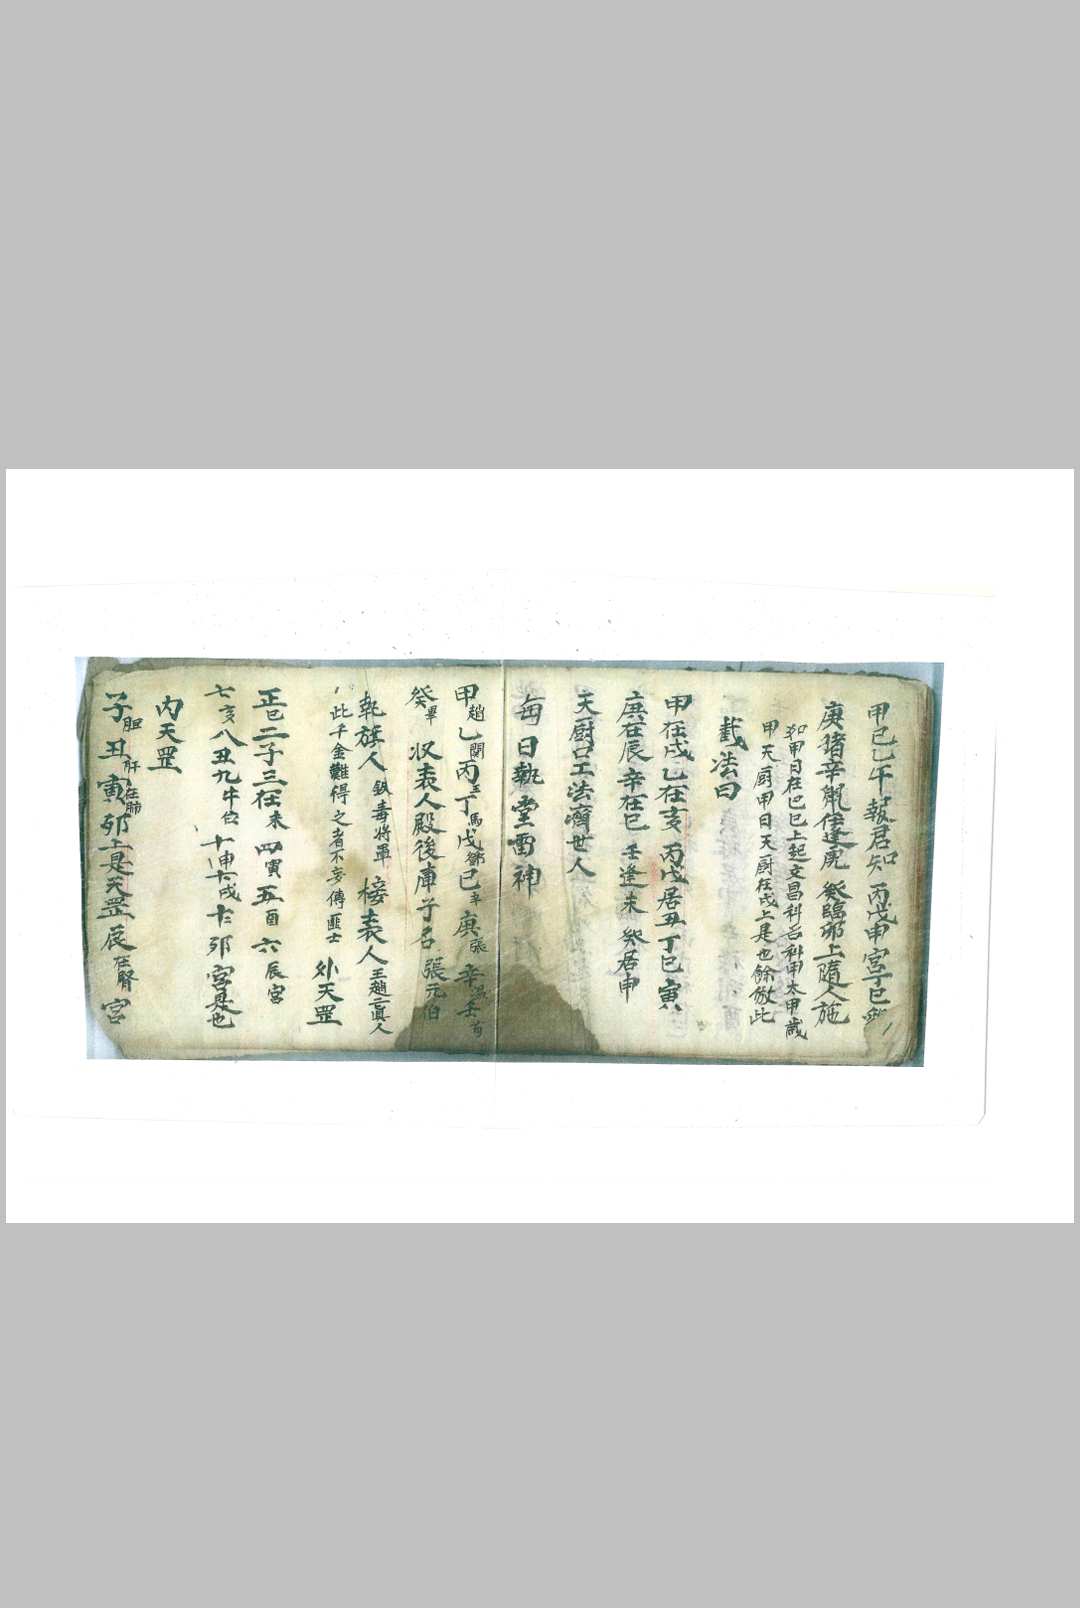 甲巳巳午報君知丙戊申宮丁巳
庚猪辛鼠壬逢虎癸臨卯上隨人施
如甲日在巳巳上起文昌科名科甲太甲歲
甲天厨甲日天厨在戌上是也餘倣此
截法曰
甲在戌乙在亥丙戊居丑丁巳寅
庚在辰辛在巳壬逢未癸居申
天厨口工法濟世人
每日執堂雷神
甲趙乙関丙王丁馬戊鄧巳辛庚張辛溫壬苟
癸畢收表人殿後庫子名張元伯
執旗人鉄毒將軍接表人王趙二真人
此千金難得之者不妄傳匪士外天罡
正巳二子三在未四寅五酉六辰宮
七亥八丑九牛位十申十一戌十二卯宮是也
内天罡
子胆丑肝寅在肺卯上是天罡辰在腎宮